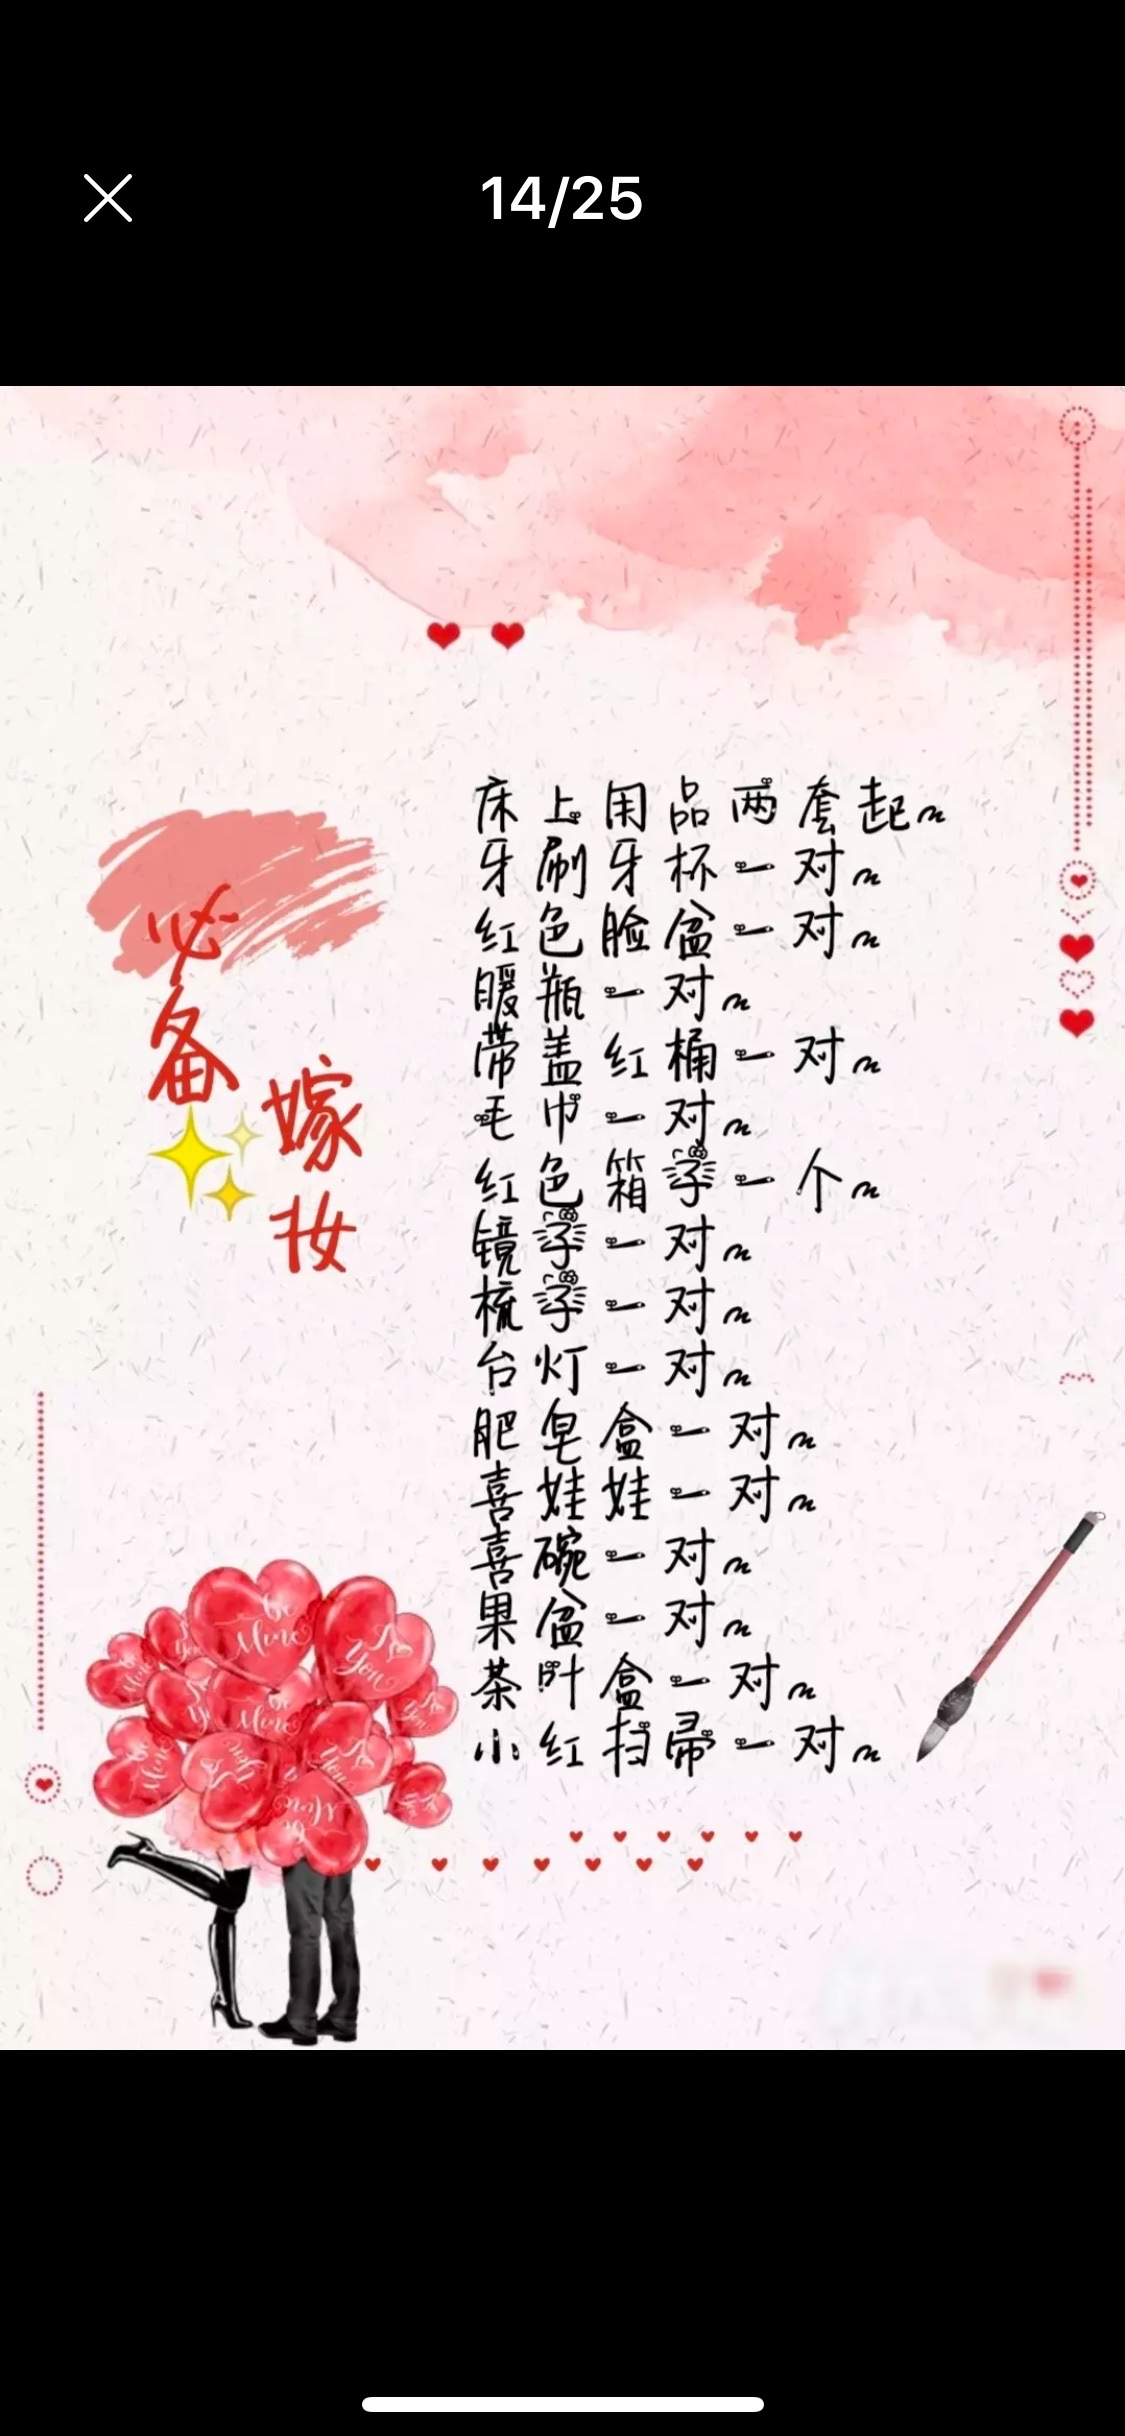 14/25
必备
嫁妆
床上用品两套起~
牙刷牙杯一对~
红色脸盆一对~
暖瓶一对~
带盖红桶一对~
毛巾一对~
红色箱子一个~
镜子一对~
梳子一对~
台灯一对~
肥皂盒一对~
喜娃娃一对~
喜碗一对~
果盆一对~
茶叶盒一对~
小红扫帚一对~
be Mine
I You
be Mine